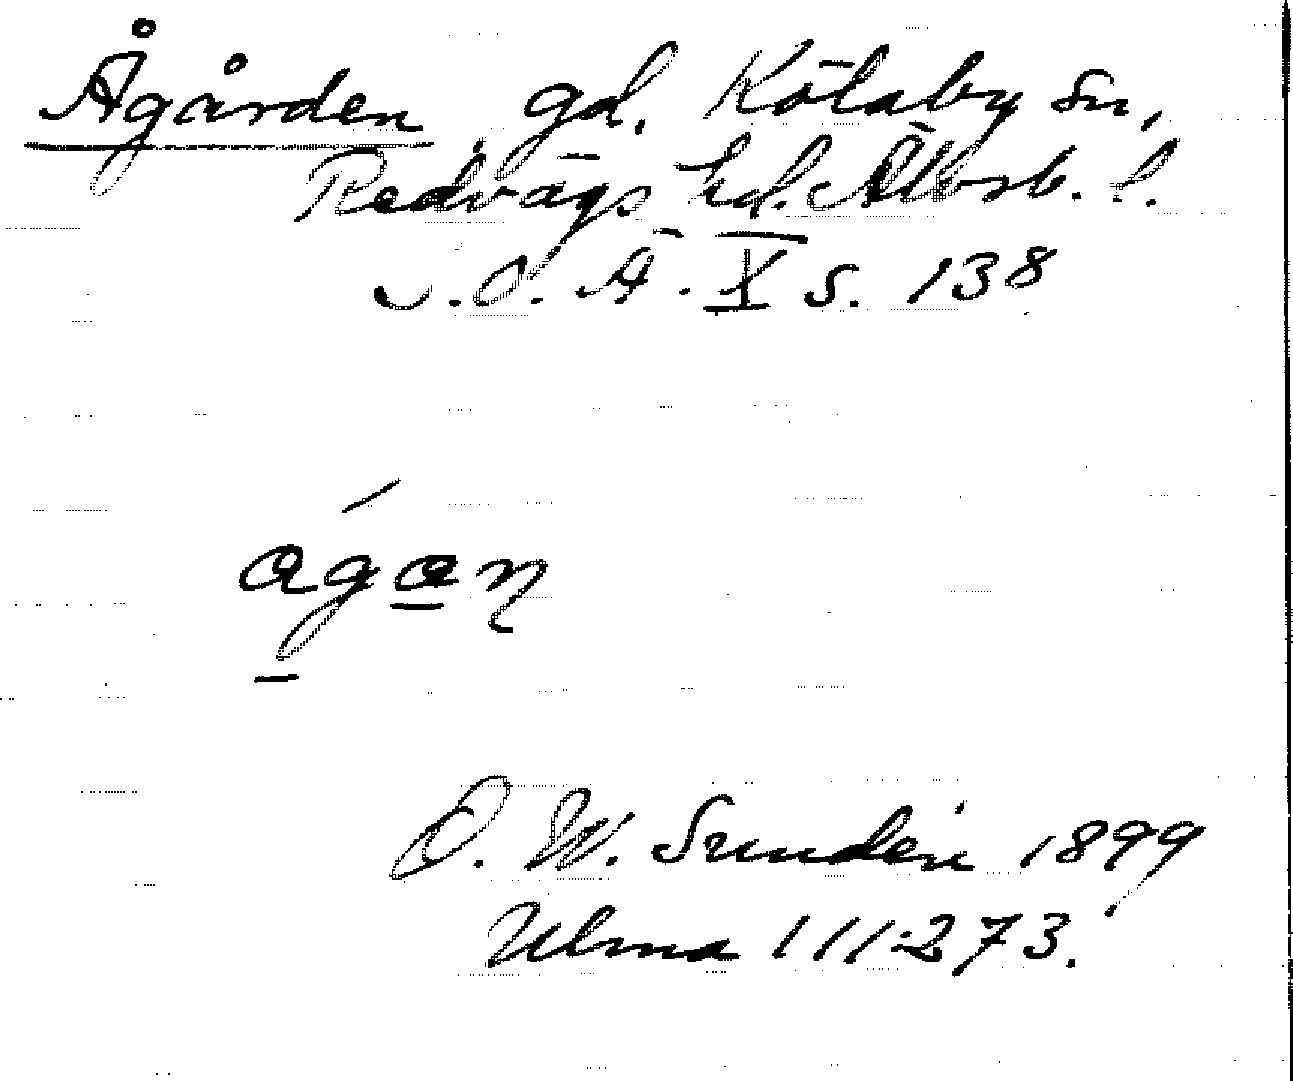 Ågården gd. Kölaby sn,
Redvägs hd. Älvsb. l.
S.O.Ä. X s. 138
agan
D. W. Sundén 1899
Ulma 111:273.